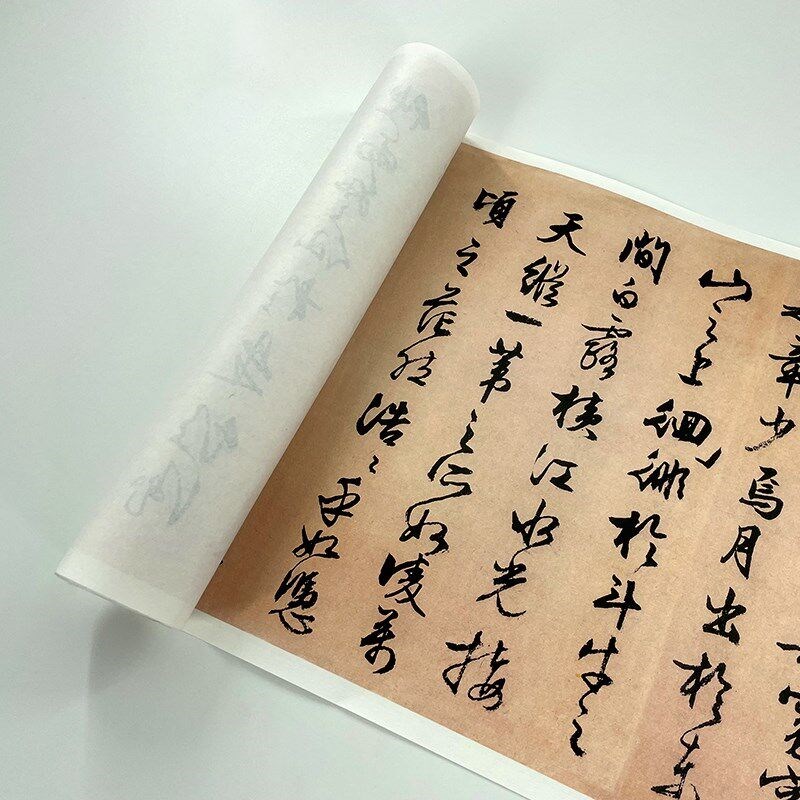 章少焉月出於東
山之上徊徘於斗牛之
間白露橫江水光接
天縱一葦之所如凌萬
頃之茫然浩〻乎如憑